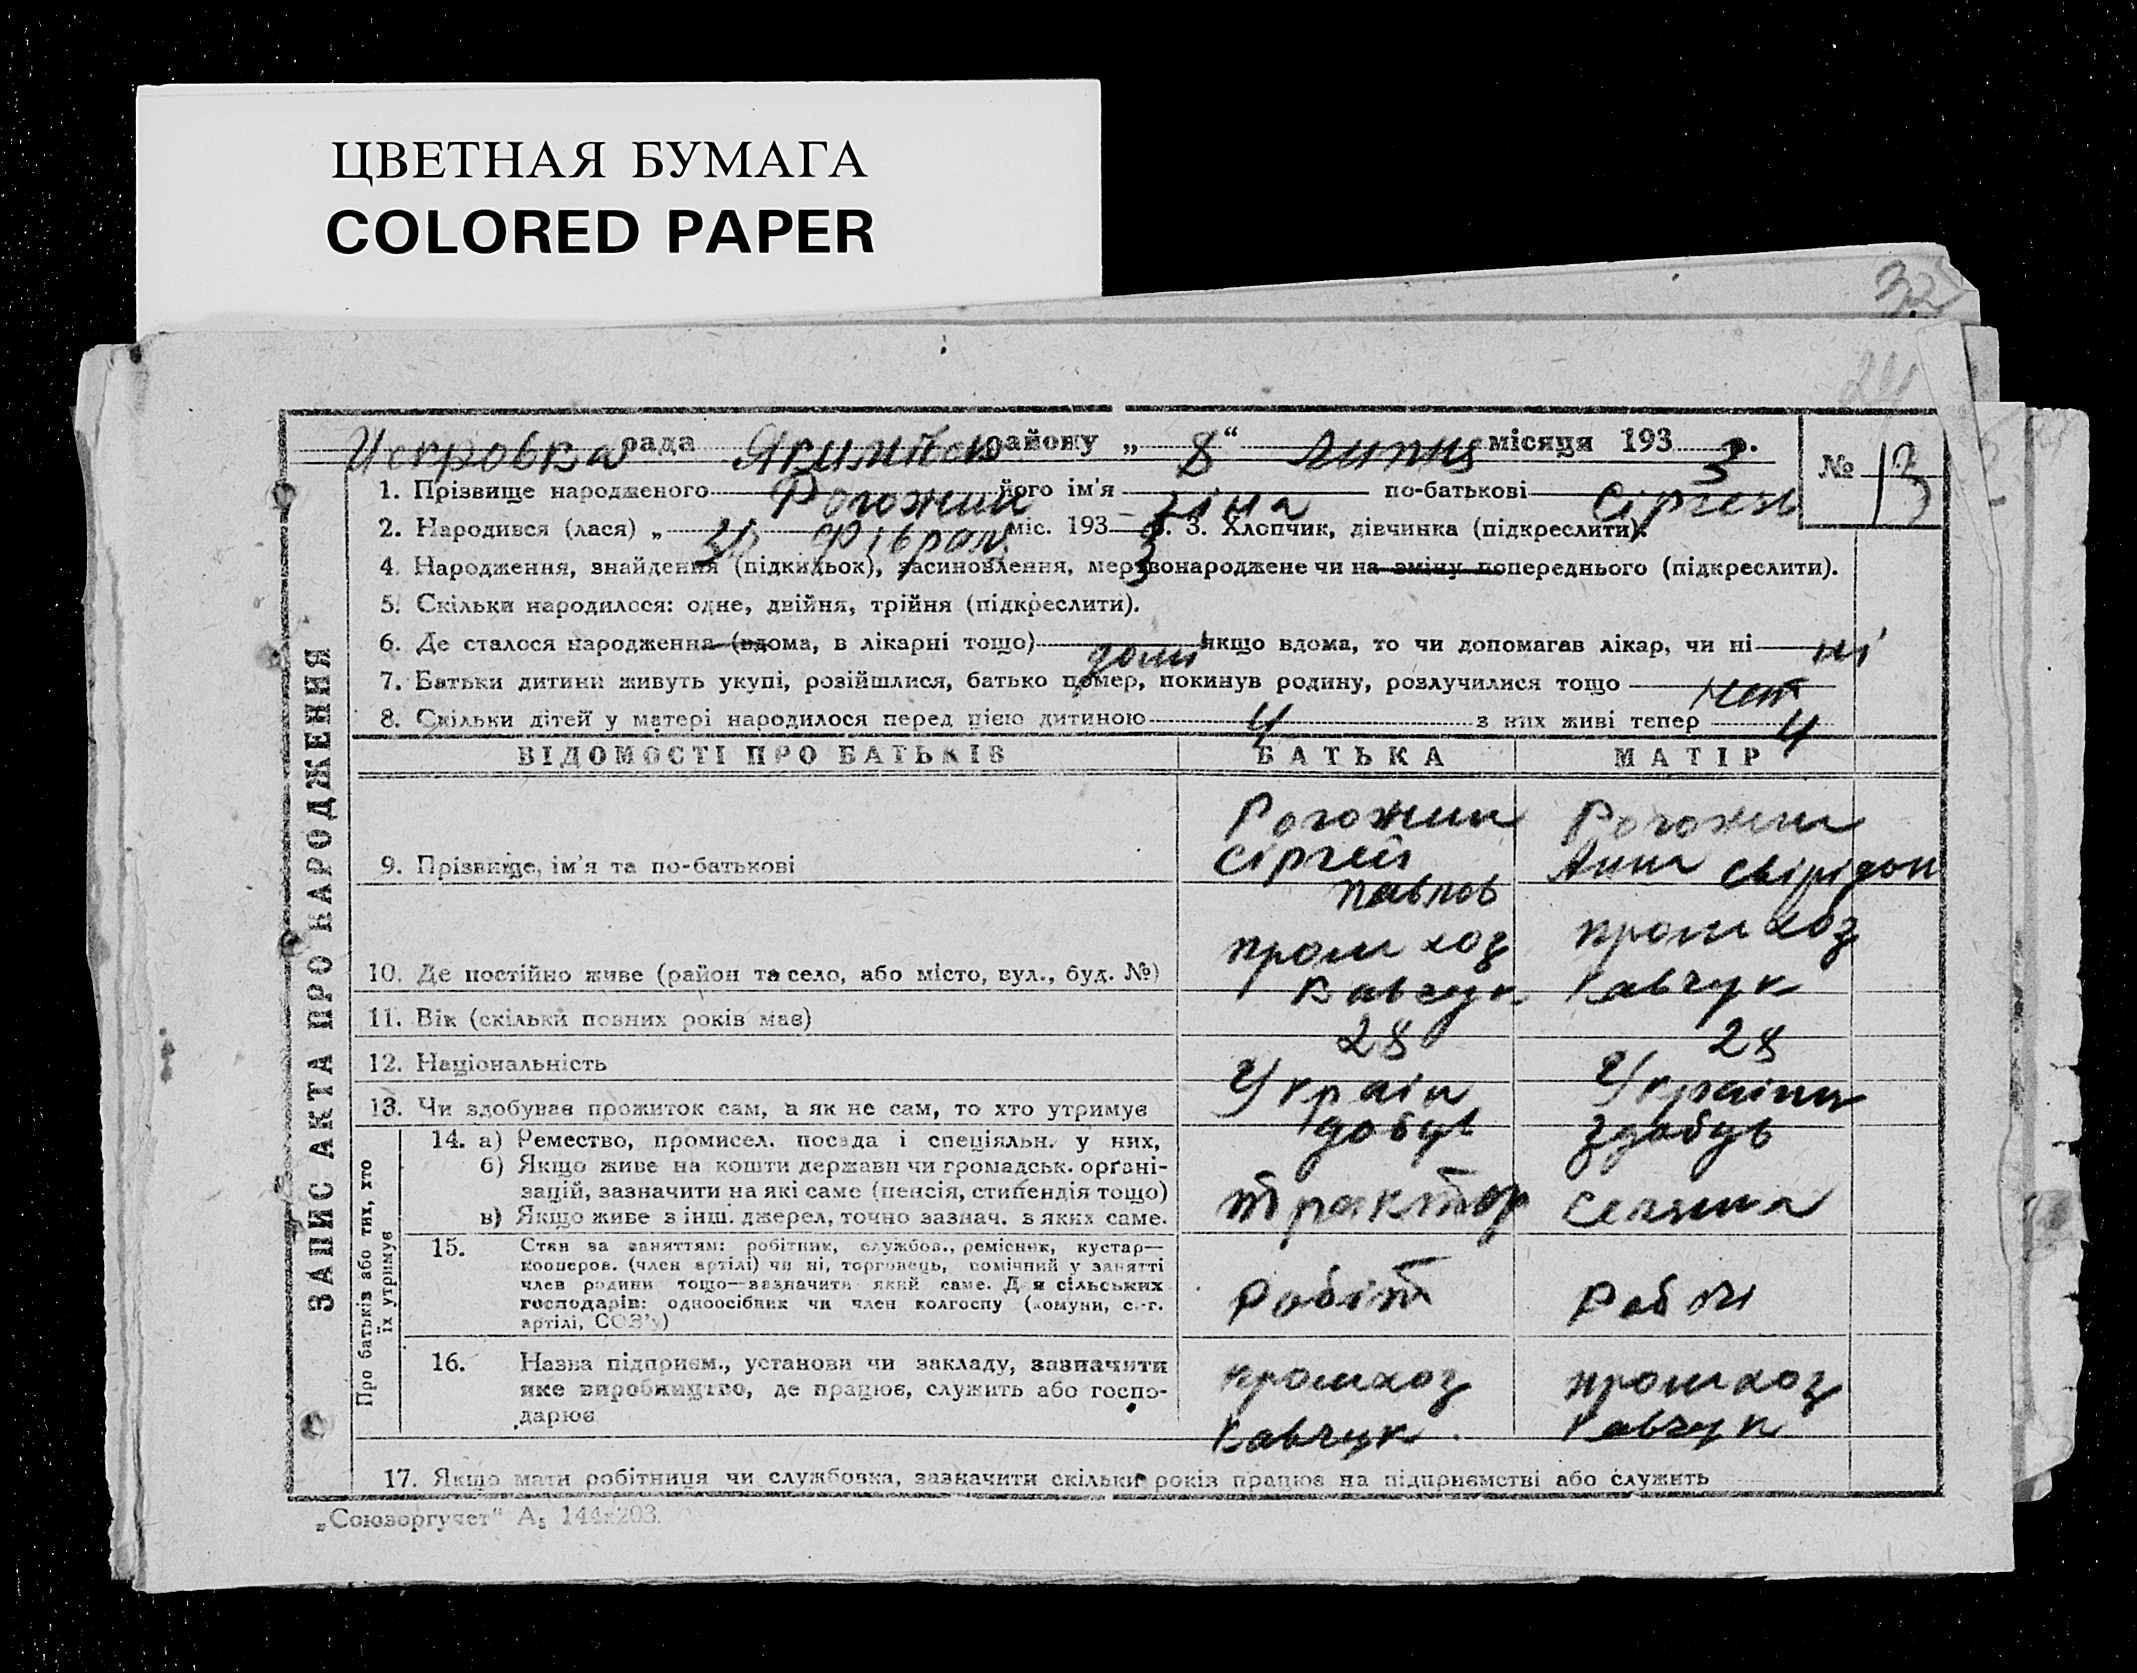 ЦВЕТНАЯ БУМАГА
COLORED PAPER
32
24
ЗАПИС АКТА ПРО НАРОДЖЕННЯ
рада району „ 8 “ липня місяця 193 3 р.
№ 13
1. Прізвище народженого Рогожин його ім'я Зіна по-батькові Сіргеев
2. Народився (лася) „ міс. 193 3 р. 3. Хлопчик, дівчинка (підкреслити).
4. Народження, знайдення (підкидьок), засиновлення, мертвонароджене чи на зміну попереднього (підкреслити).
5. Скільки народилося: одне, двійня, трійня (підкреслити).
6. Де сталося народження (вдома, в лікарні тощо) домі якщо вдома, то чи допомагав лікар, чи ні ні
7. Батьки дитини живуть укупі, розійшлися, батько помер, покинув родину, розлучилися тощо нет
8. Скільки дітей у матері народилося перед цією дитиною 4 з них живі тепер 4
ВІДОМОСТІ ПРО БАТЬКІВ БАТЬКА МАТІР
9. Прізвище, ім'я та по-батькові Рогожин Сіргей Павлов Рогожин Анна Свірідон
10. Де постійно живе (район та село, або місто, вул., буд. №) промхоз Кавчук промхоз Кавчук
11. Вік (скільки повних років має) 28 28
12. Національність Украін Украінк
13. Чи здобуває прожиток сам, а як не сам, то хто утримує добув здобув
Про батьків або тих, хто їх утримує
14. а) Ремество, промисел. посада і спеціяльн. у них,
б) Якщо живе на кошти держави чи громадськ. орґані-
зацій, зазначити на які саме (пенсія, стипендія тощо)
в) Якщо живе з інш. джерел, точно зазнач. з яких саме.
трактор селянка
15. Стан за заняттям: робітник, службов., ремісник, кустар—
кооперов. (член артілі) чи ні, торговець, помічний у занятті
член родини тощо—зазначити який саме. Для сільських
господарів: одноосібник чи член колгоспу (комуни, с.-г.
артілі, СОЗ'у)
Робіт Роб
16. Назва підприєм., установи чи закладу, зазначити
яке виробництво, де працює, служить або госпо-
дарює
промхоз Кавчук промхоз Кавчук
17. Якщо мати робітниця чи службовка, зазначити скільки років працює на підприємстві або служить
„Союзоргучет“ А5 144х203.